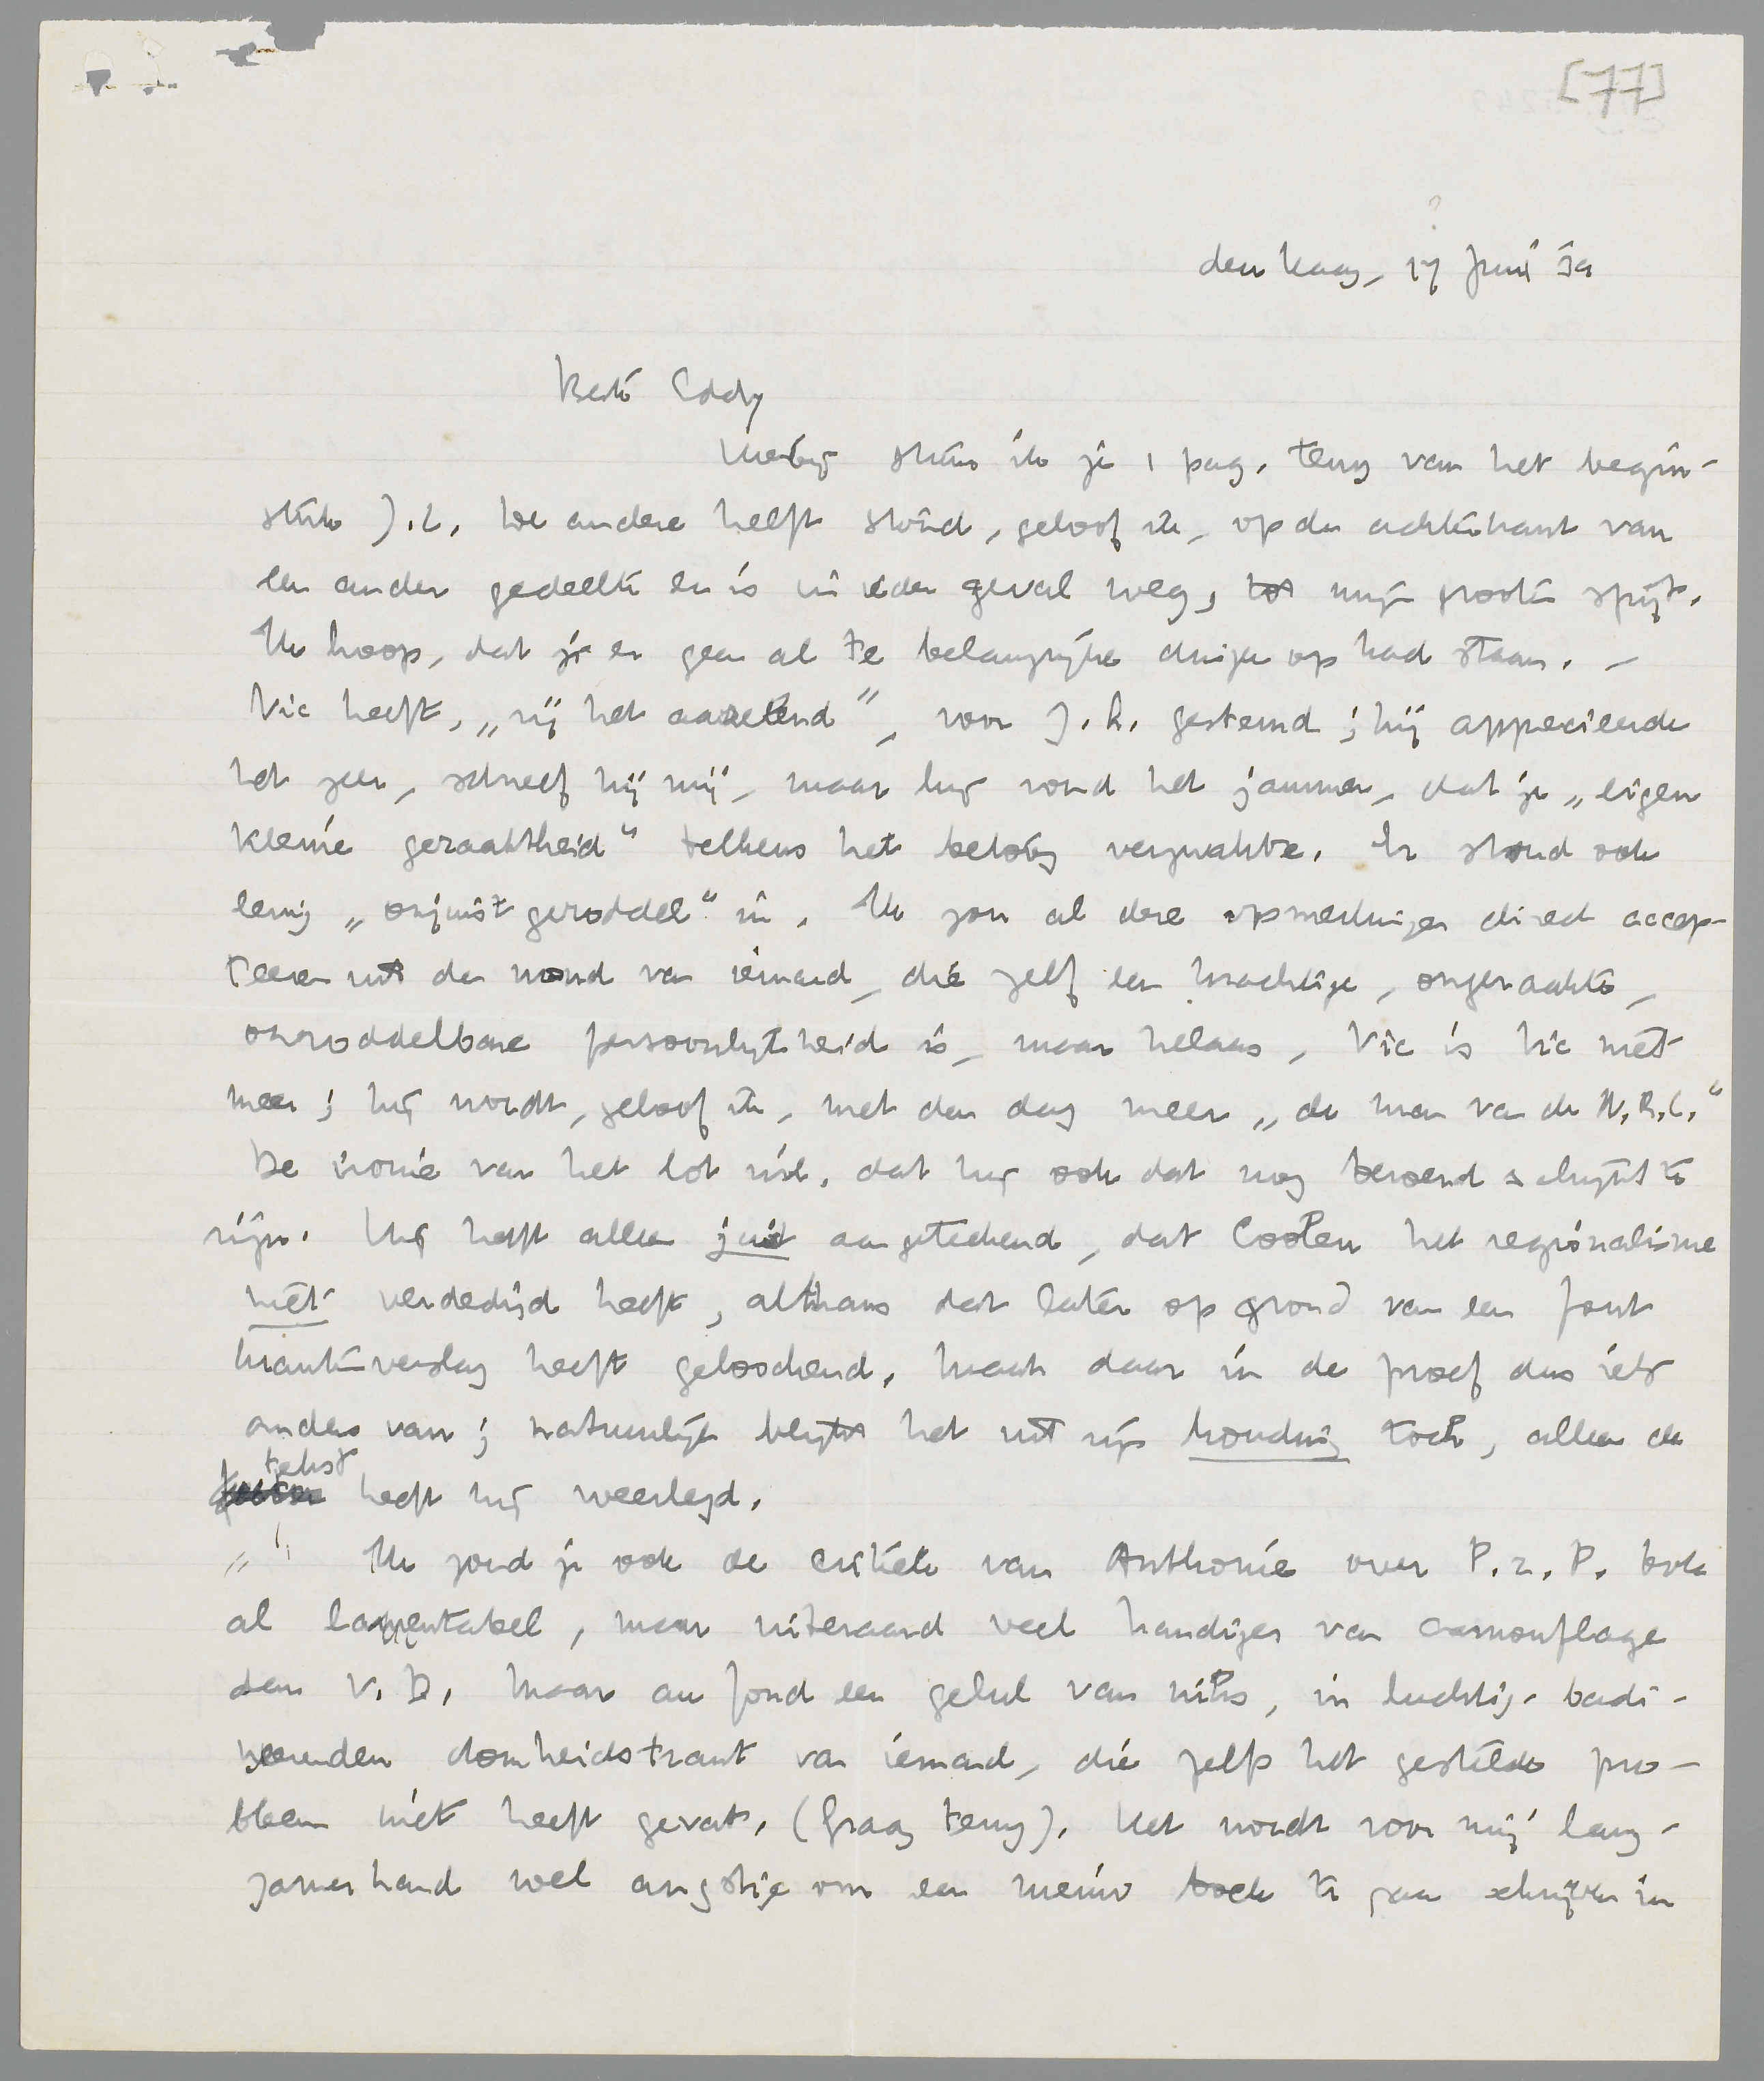 [77]
?
den Haag, 17 Juni 32
Beste Eddy
Hierbij stuur ik je 1 pag. terug van het begin-
stuk J.L. De andere helft stond, geloof ik, op de achterkant van
een ander gedeelte en is in ieder geval weg, tot mijn groote spijt.
Ik hoop, dat je er geen al te belangrijke dingen op had staan. –
Vic heeft, „zij het aarzelend”, voor J.L. gestemd; hij apprecieerde
het zeer, schreef hij mij, maar hij vond het jammer, dat je „eigen
kleine geraaktheid” telkens het betoog verzwakte. Er stond ook
eenig „onjuist geroddel” in. Ik zou al deze opmerkingen direct accep-
teeren uit den mond van iemand, die zelf een krachtige, ongeraakte,
onroddelbare persoonlijkheid is, maar helaas, Vic is Vic niet
meer; hij wordt, geloof ik, met den dag meer „de man van de N.R.C.”
De ironie van het lot wil, dat hij ook dat nog beroerd schijnt te
zijn. Hij heeft alleen juist aangeteekend, dat Coolen het regionalisme
niet verdedigd heeft, althans dat later op grond van een fout
krantenverslag heeft geloochend. Maak daar in de proef dus iets
anders van; natuurlijk blijkt het uit zijn houding toch, alleen de
tekst heeft hij weerlegd.
Ik zond je ook de critiek van Anthonie over P.z.P. Ook
al lamentabel, maar uiteraard veel handiger van camouflage
dan V.D. Maar au fond een gelul van niks, in luchtig-badi-
neerenden domheidstrant van iemand, die zelfs het gestelde pro-
bleem niet heeft gevat. (Graag terug). Het wordt voor mij lang-
zamerhand wel angstig om een nieuw boek te gaan schrijven in